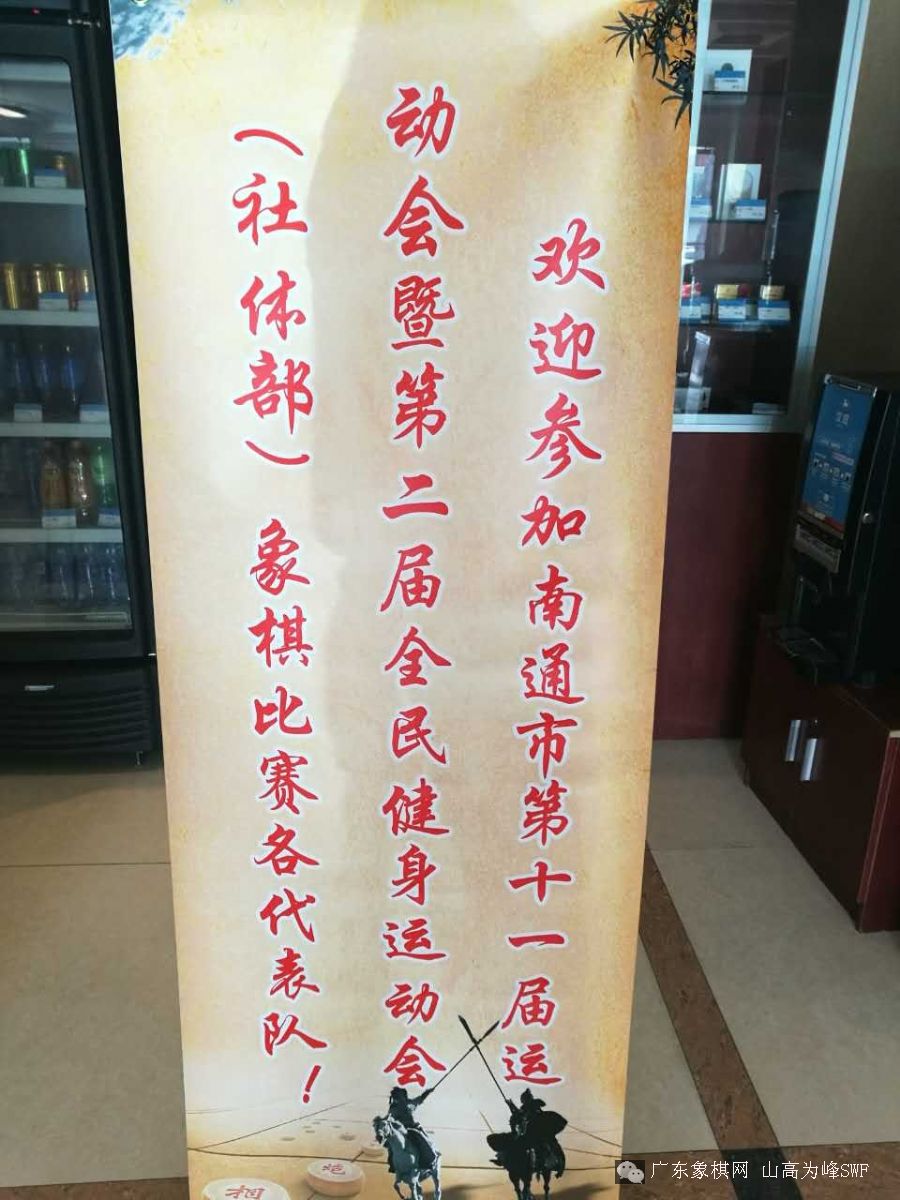 欢迎参加南通市第十一届运
动会暨第二届全民健身运动会
（社体部）象棋比赛各代表队！
炮
相
广东象棋网 山高为峰SWF